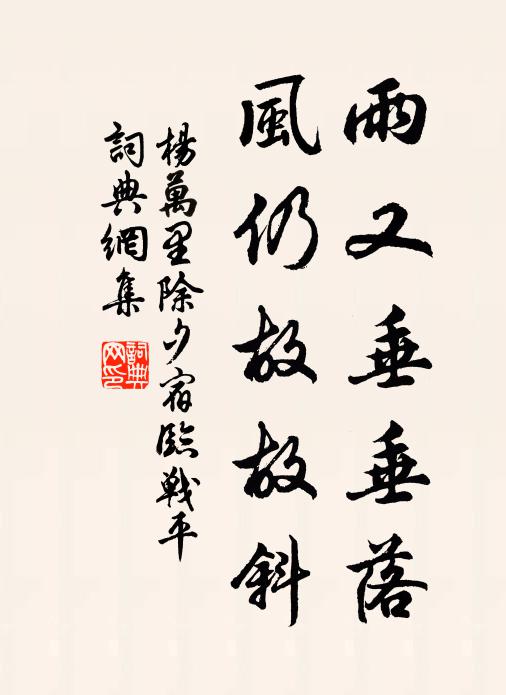 雨又垂垂落
風仍故故斜
楊萬里除夕宿臨戰平
詞典網集
詞典網印